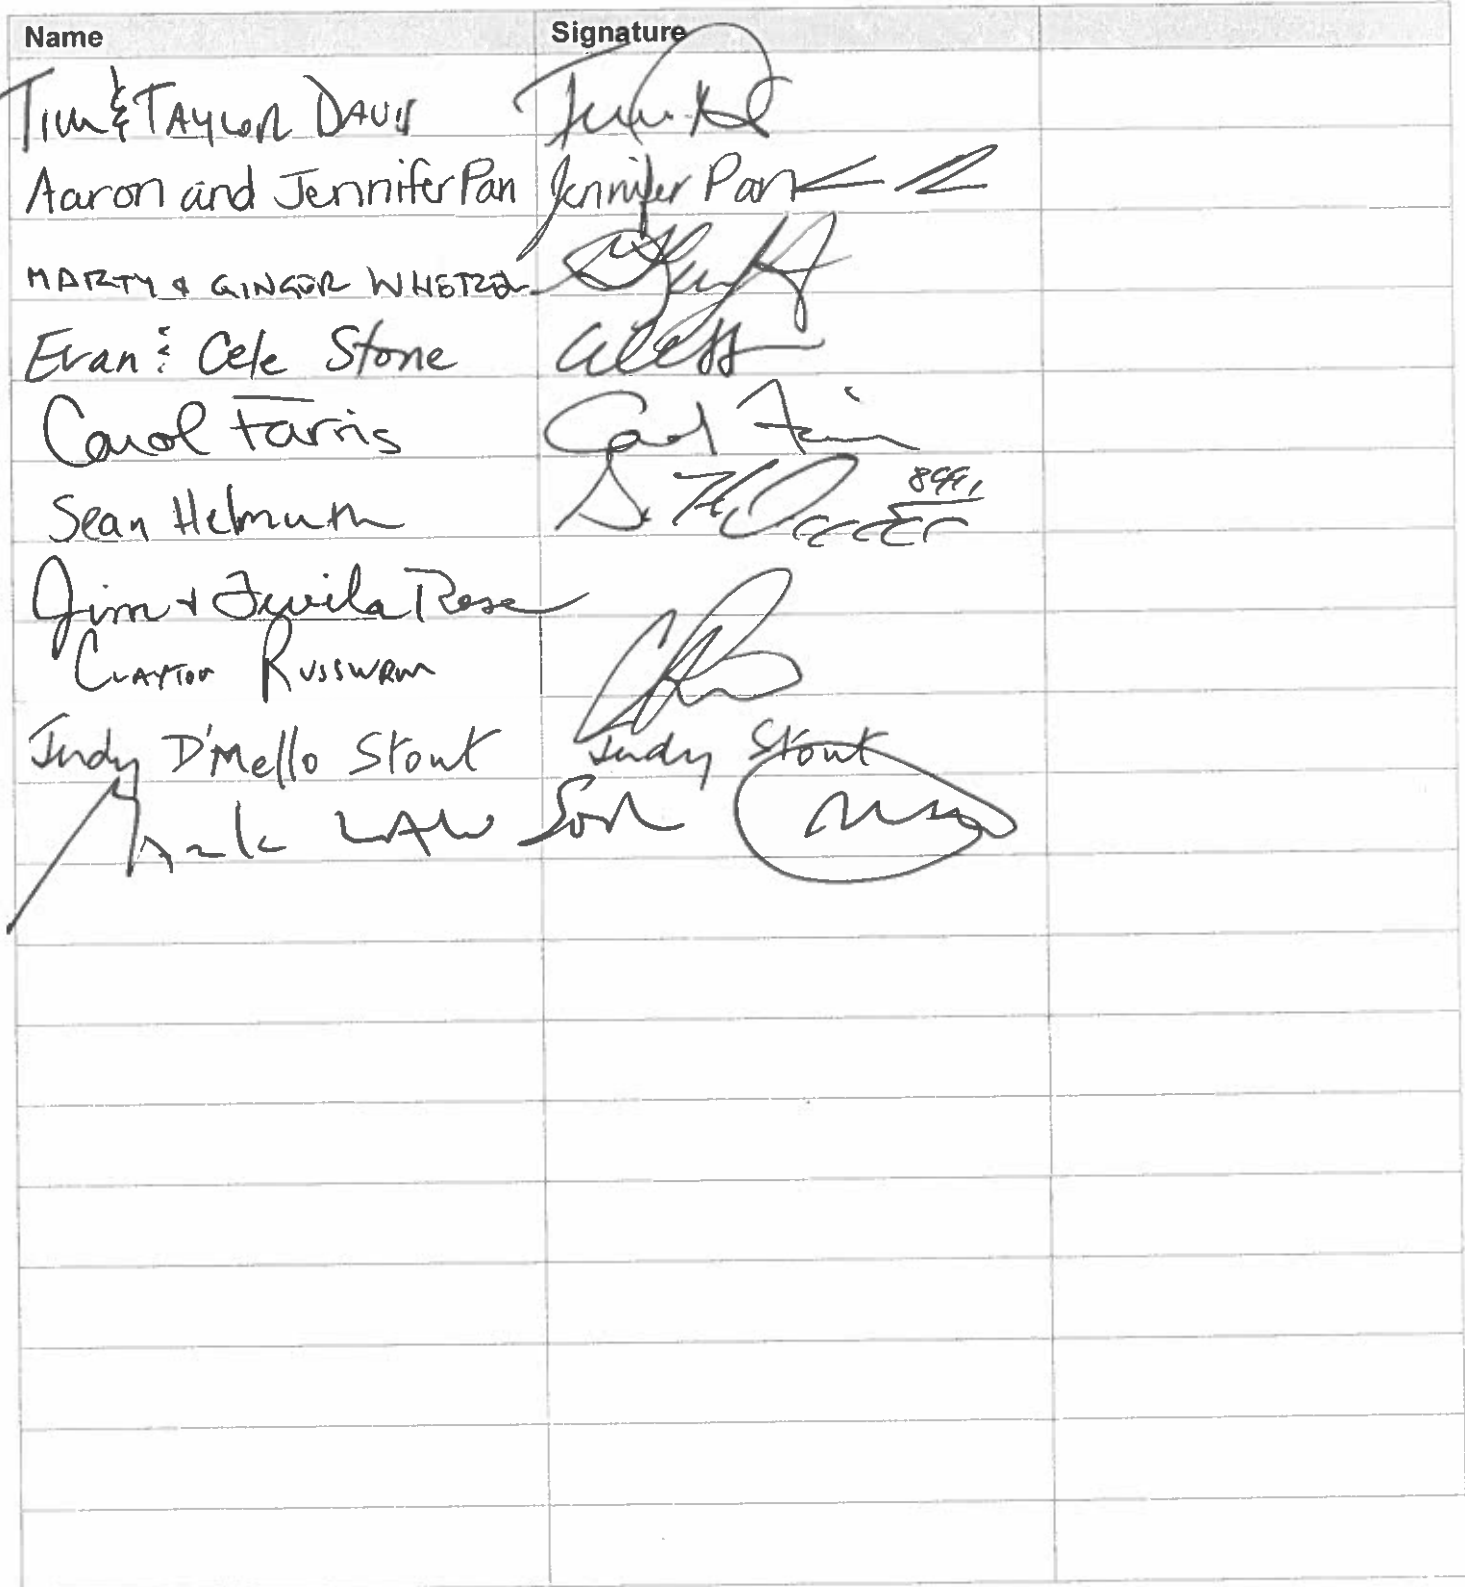 Name Signature
Tim & TAYLOR DAVIS
Aaron and Jennifer Pan Jennifer Pan
MARTY & GINGER WHETZEL
Evan & Cele Stone
Carol Farris Carol Farris
Sean Helmuth
Jim + Twila Rose
CLAYTON RUSSWRM
Judy D'Mello Stout Judy Stout
LAWSON